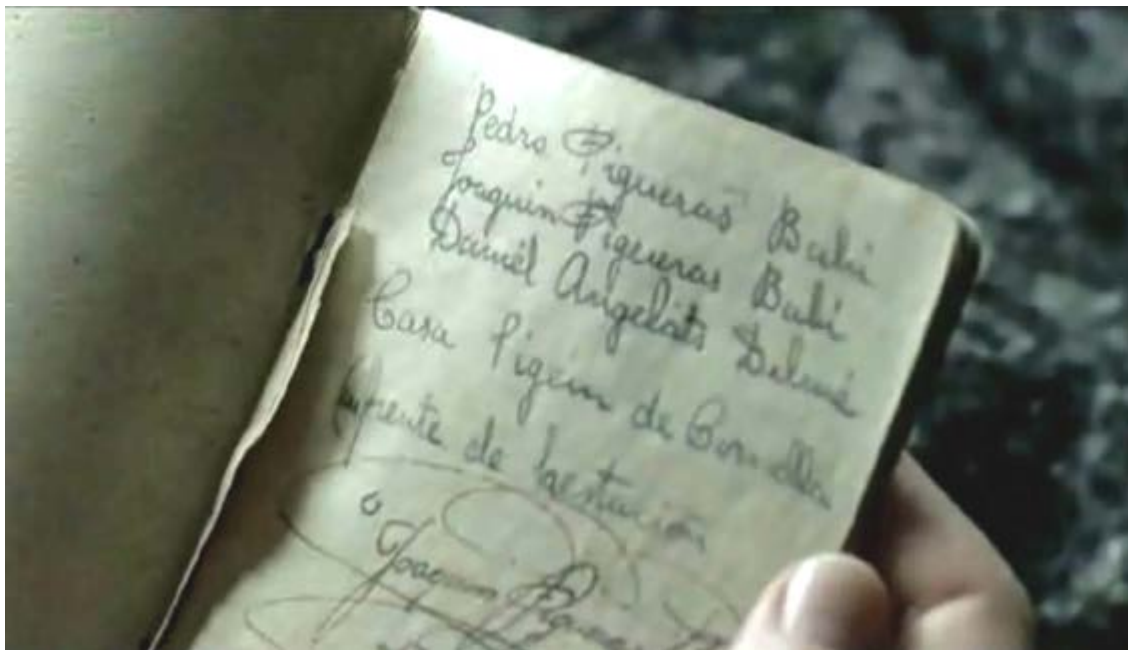 Pedro Figueras Bahi
Joaquin Figueras Bahi
Daniel Angelats Dilmé
Casa Pigem de Cornellá
Enfrente de la estación
o
Joaquin Figueras